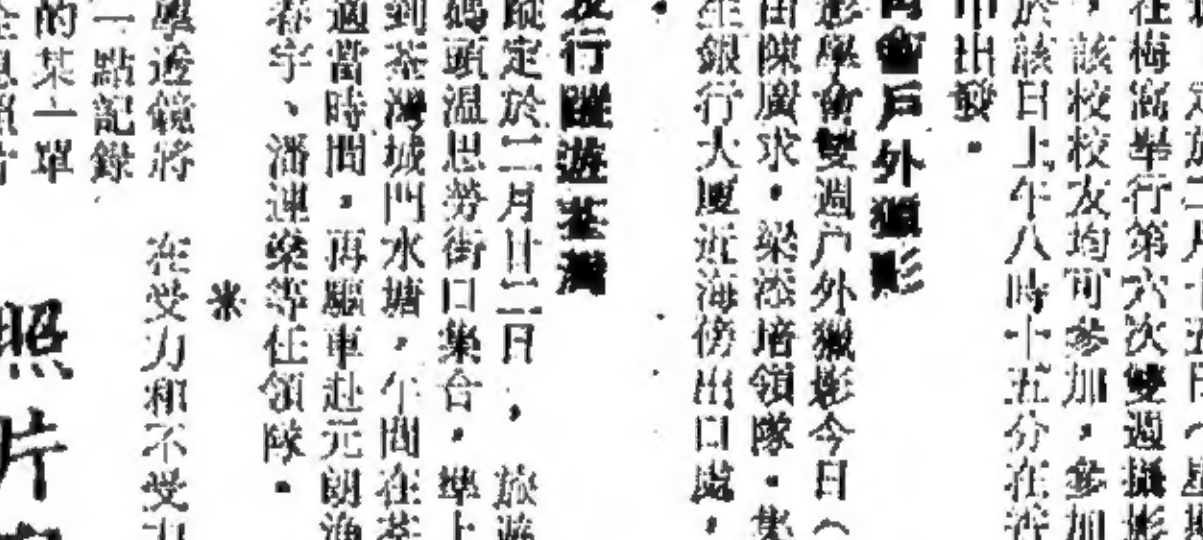 定於二月十五日（星
在梅窩舉行第六次雙週攝影
，該校校友均可參加，參加
於該日上午八時十五分在
中出發。
會戶外獵影
影學會雙週戶外獵影今日（
由陳廣求，梁添培領隊。集
生銀行大廈近海傍出口處，
旅行暢遊荃灣
定於二月廿二日，旅遊
碼頭溫思勞街口集合，準上
到荃灣城門水塘，午間在荃
適當時間，再驅車赴元朗漁
春宇、潘連榮等任領隊。
＊
在受力和不受力
透鏡將
一點記錄
的某一單
照片